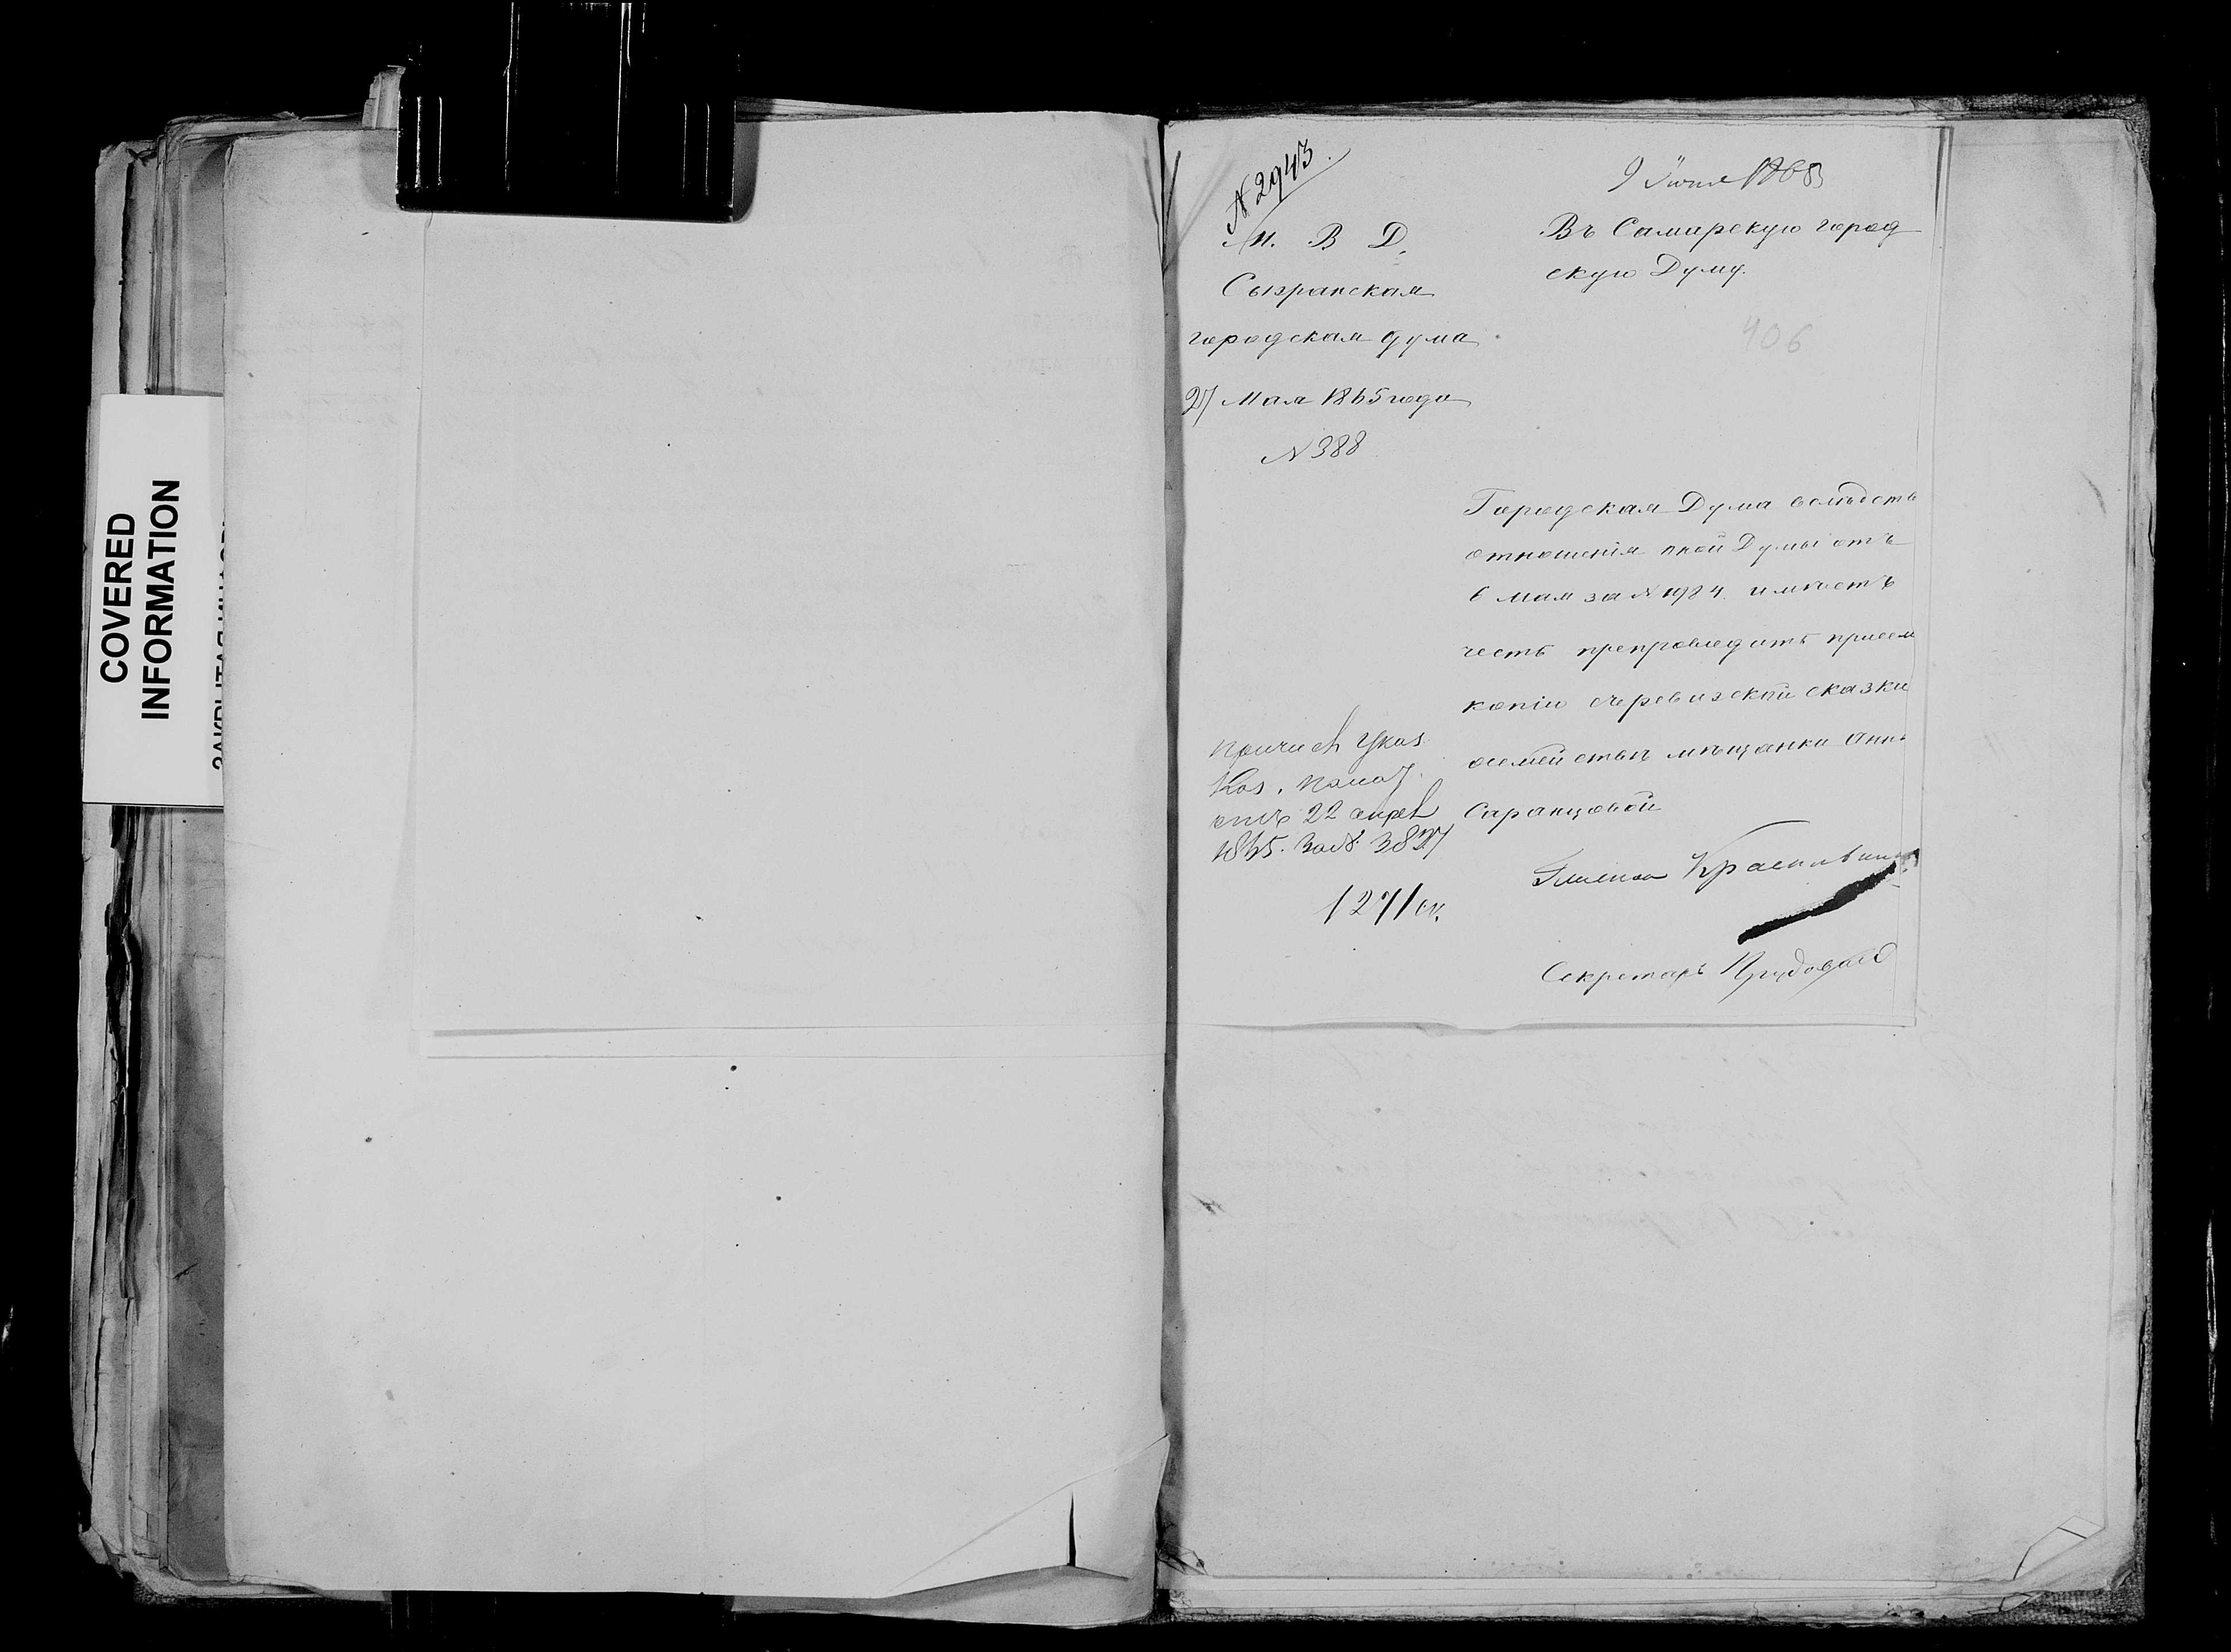 COVERED
INFORMATION
№ 2943.
М. В. Д.
Сызранская
городская дума
27 Мая 1865 года
№ 388
9 Июня 1865
Въ Самарскую город
скую Думу.
406
Городская Дума вслѣдств
отношенія оной Думы отъ
6 Мая за № 1984 имѣетъ
честь препроводить при семъ
копію съ ревизской сказки
о семействѣ мѣщанки Анны
Саранцовой
Причис Указ.
Каз. Палат
отъ 22 апрел
1865. за № 3827
1271 ск.
Секретарь